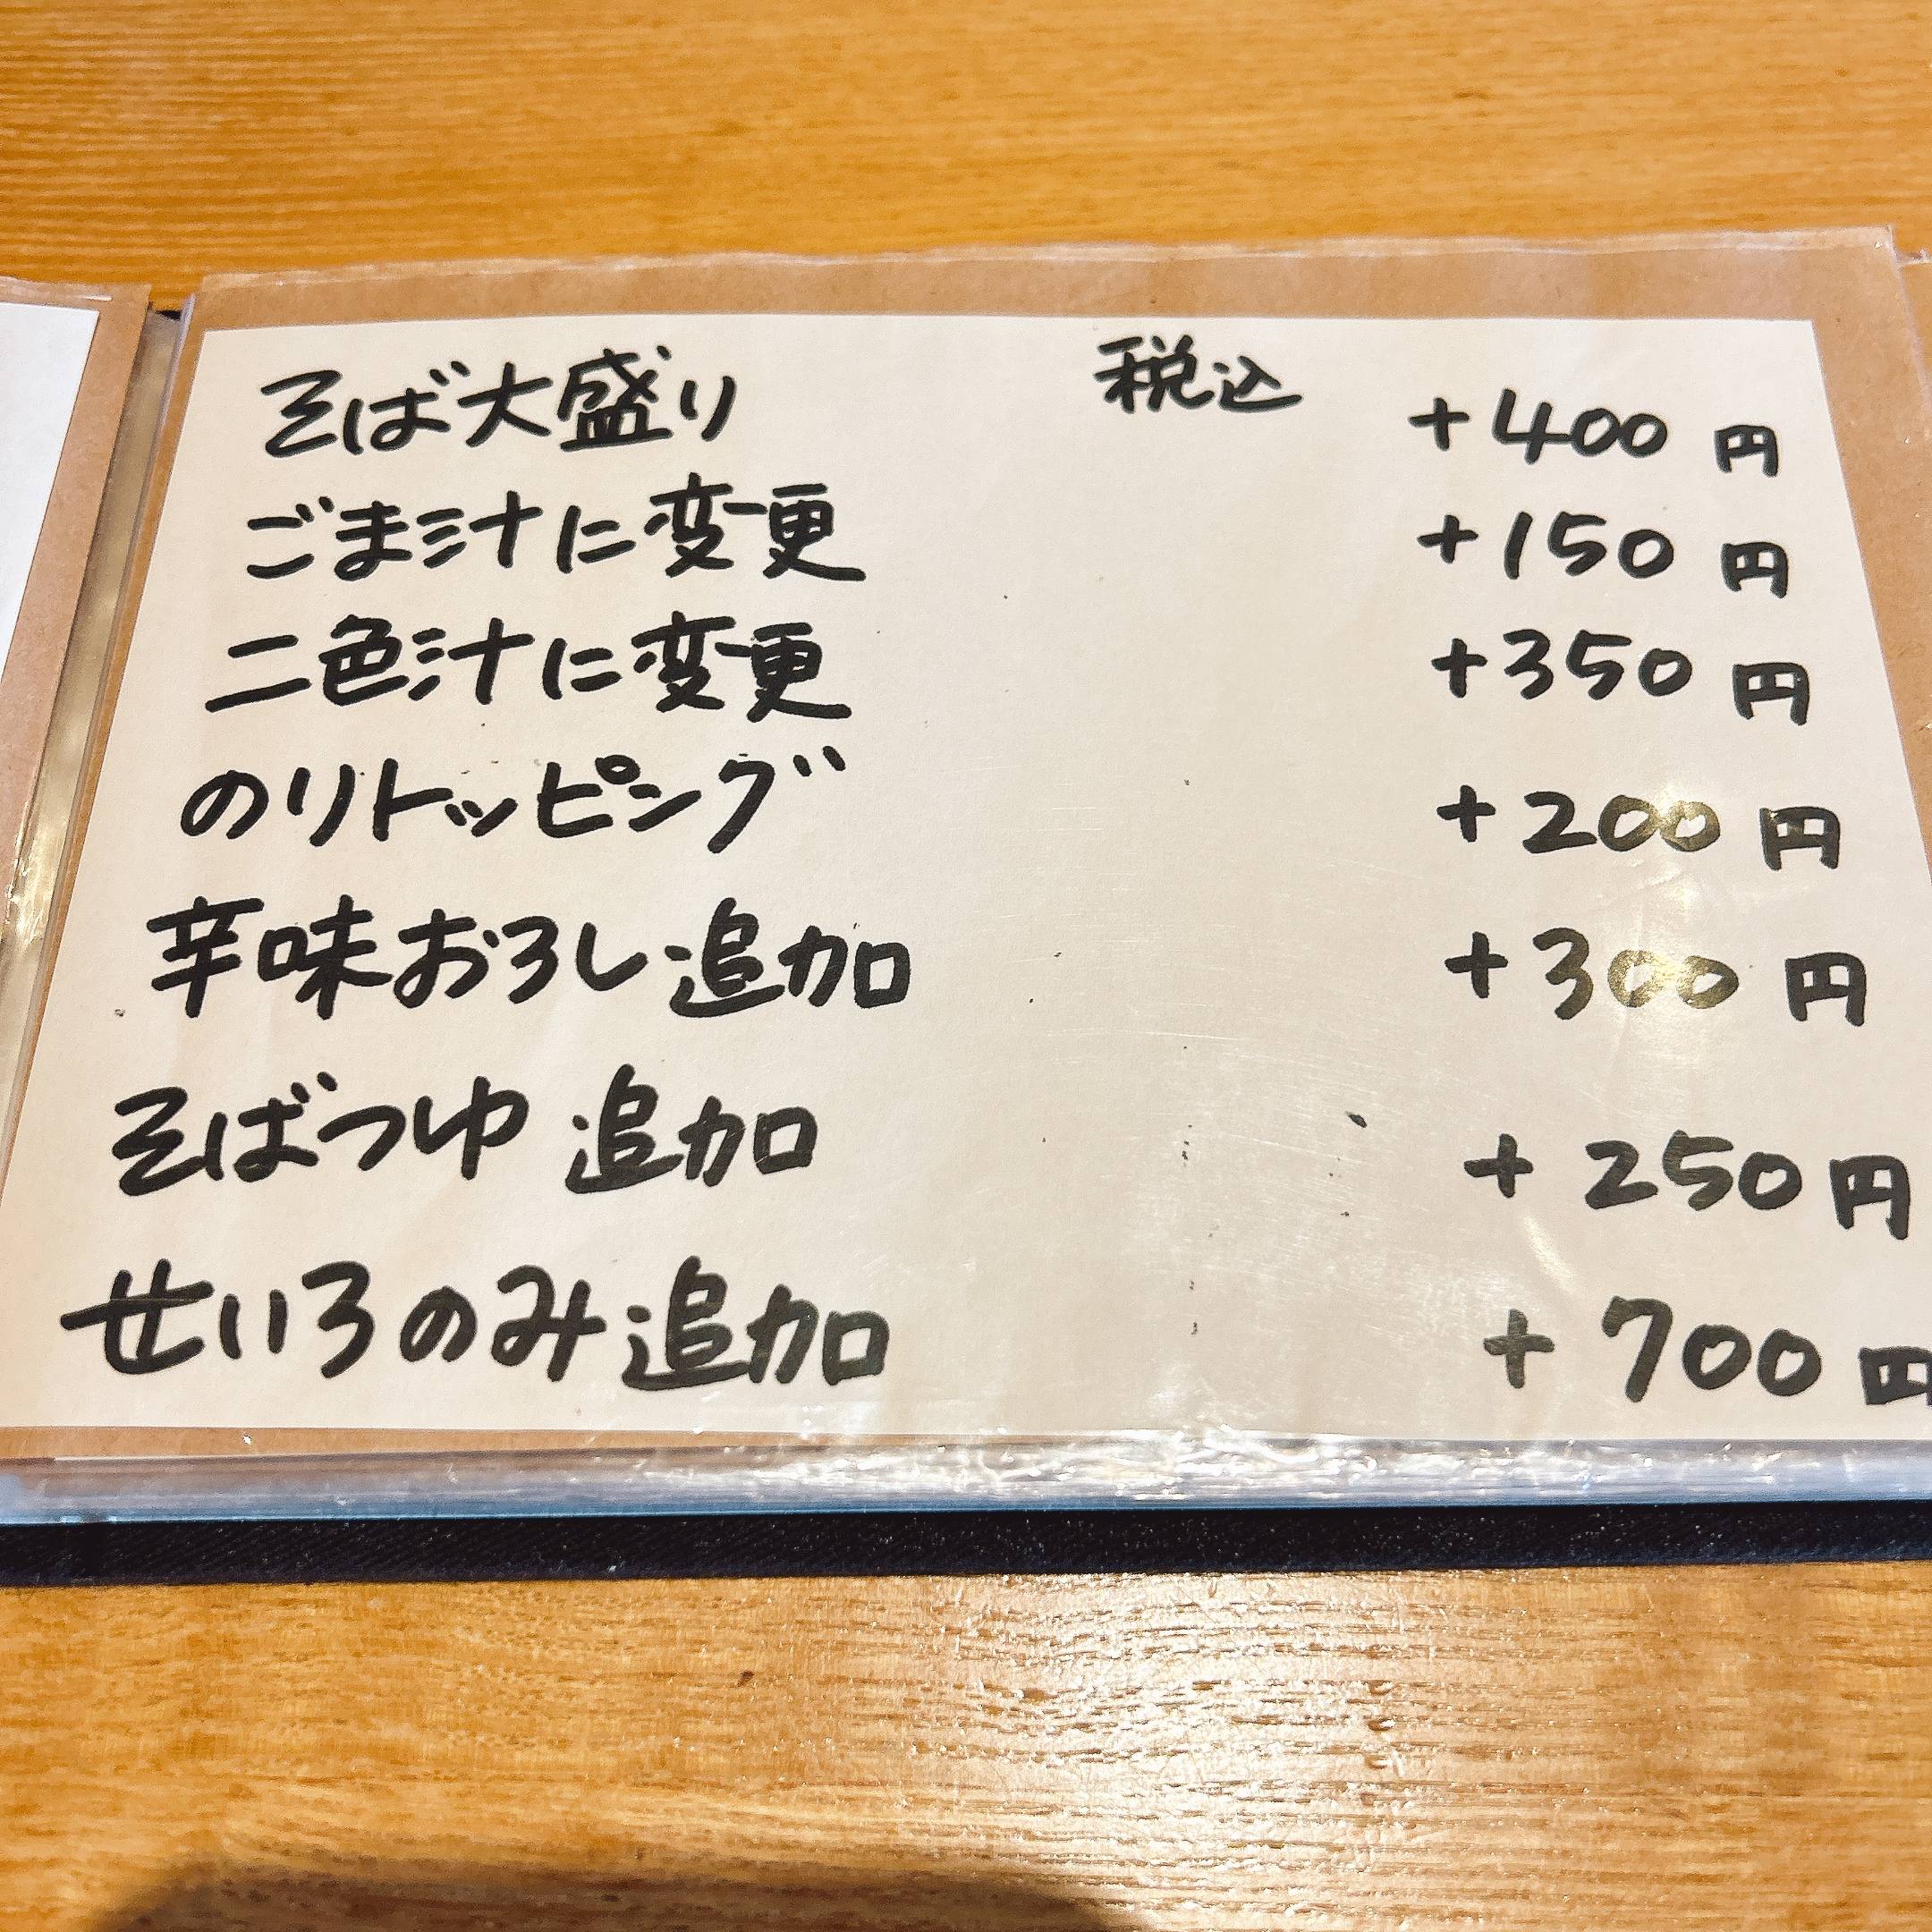 そば大盛り 税込 +400円
ごま汁に変更 +150円
二色汁に変更 +350円
のりトッピング +200円
辛味おろし追加 +300円
そばつゆ追加 +250円
せいろのみ追加 +700円